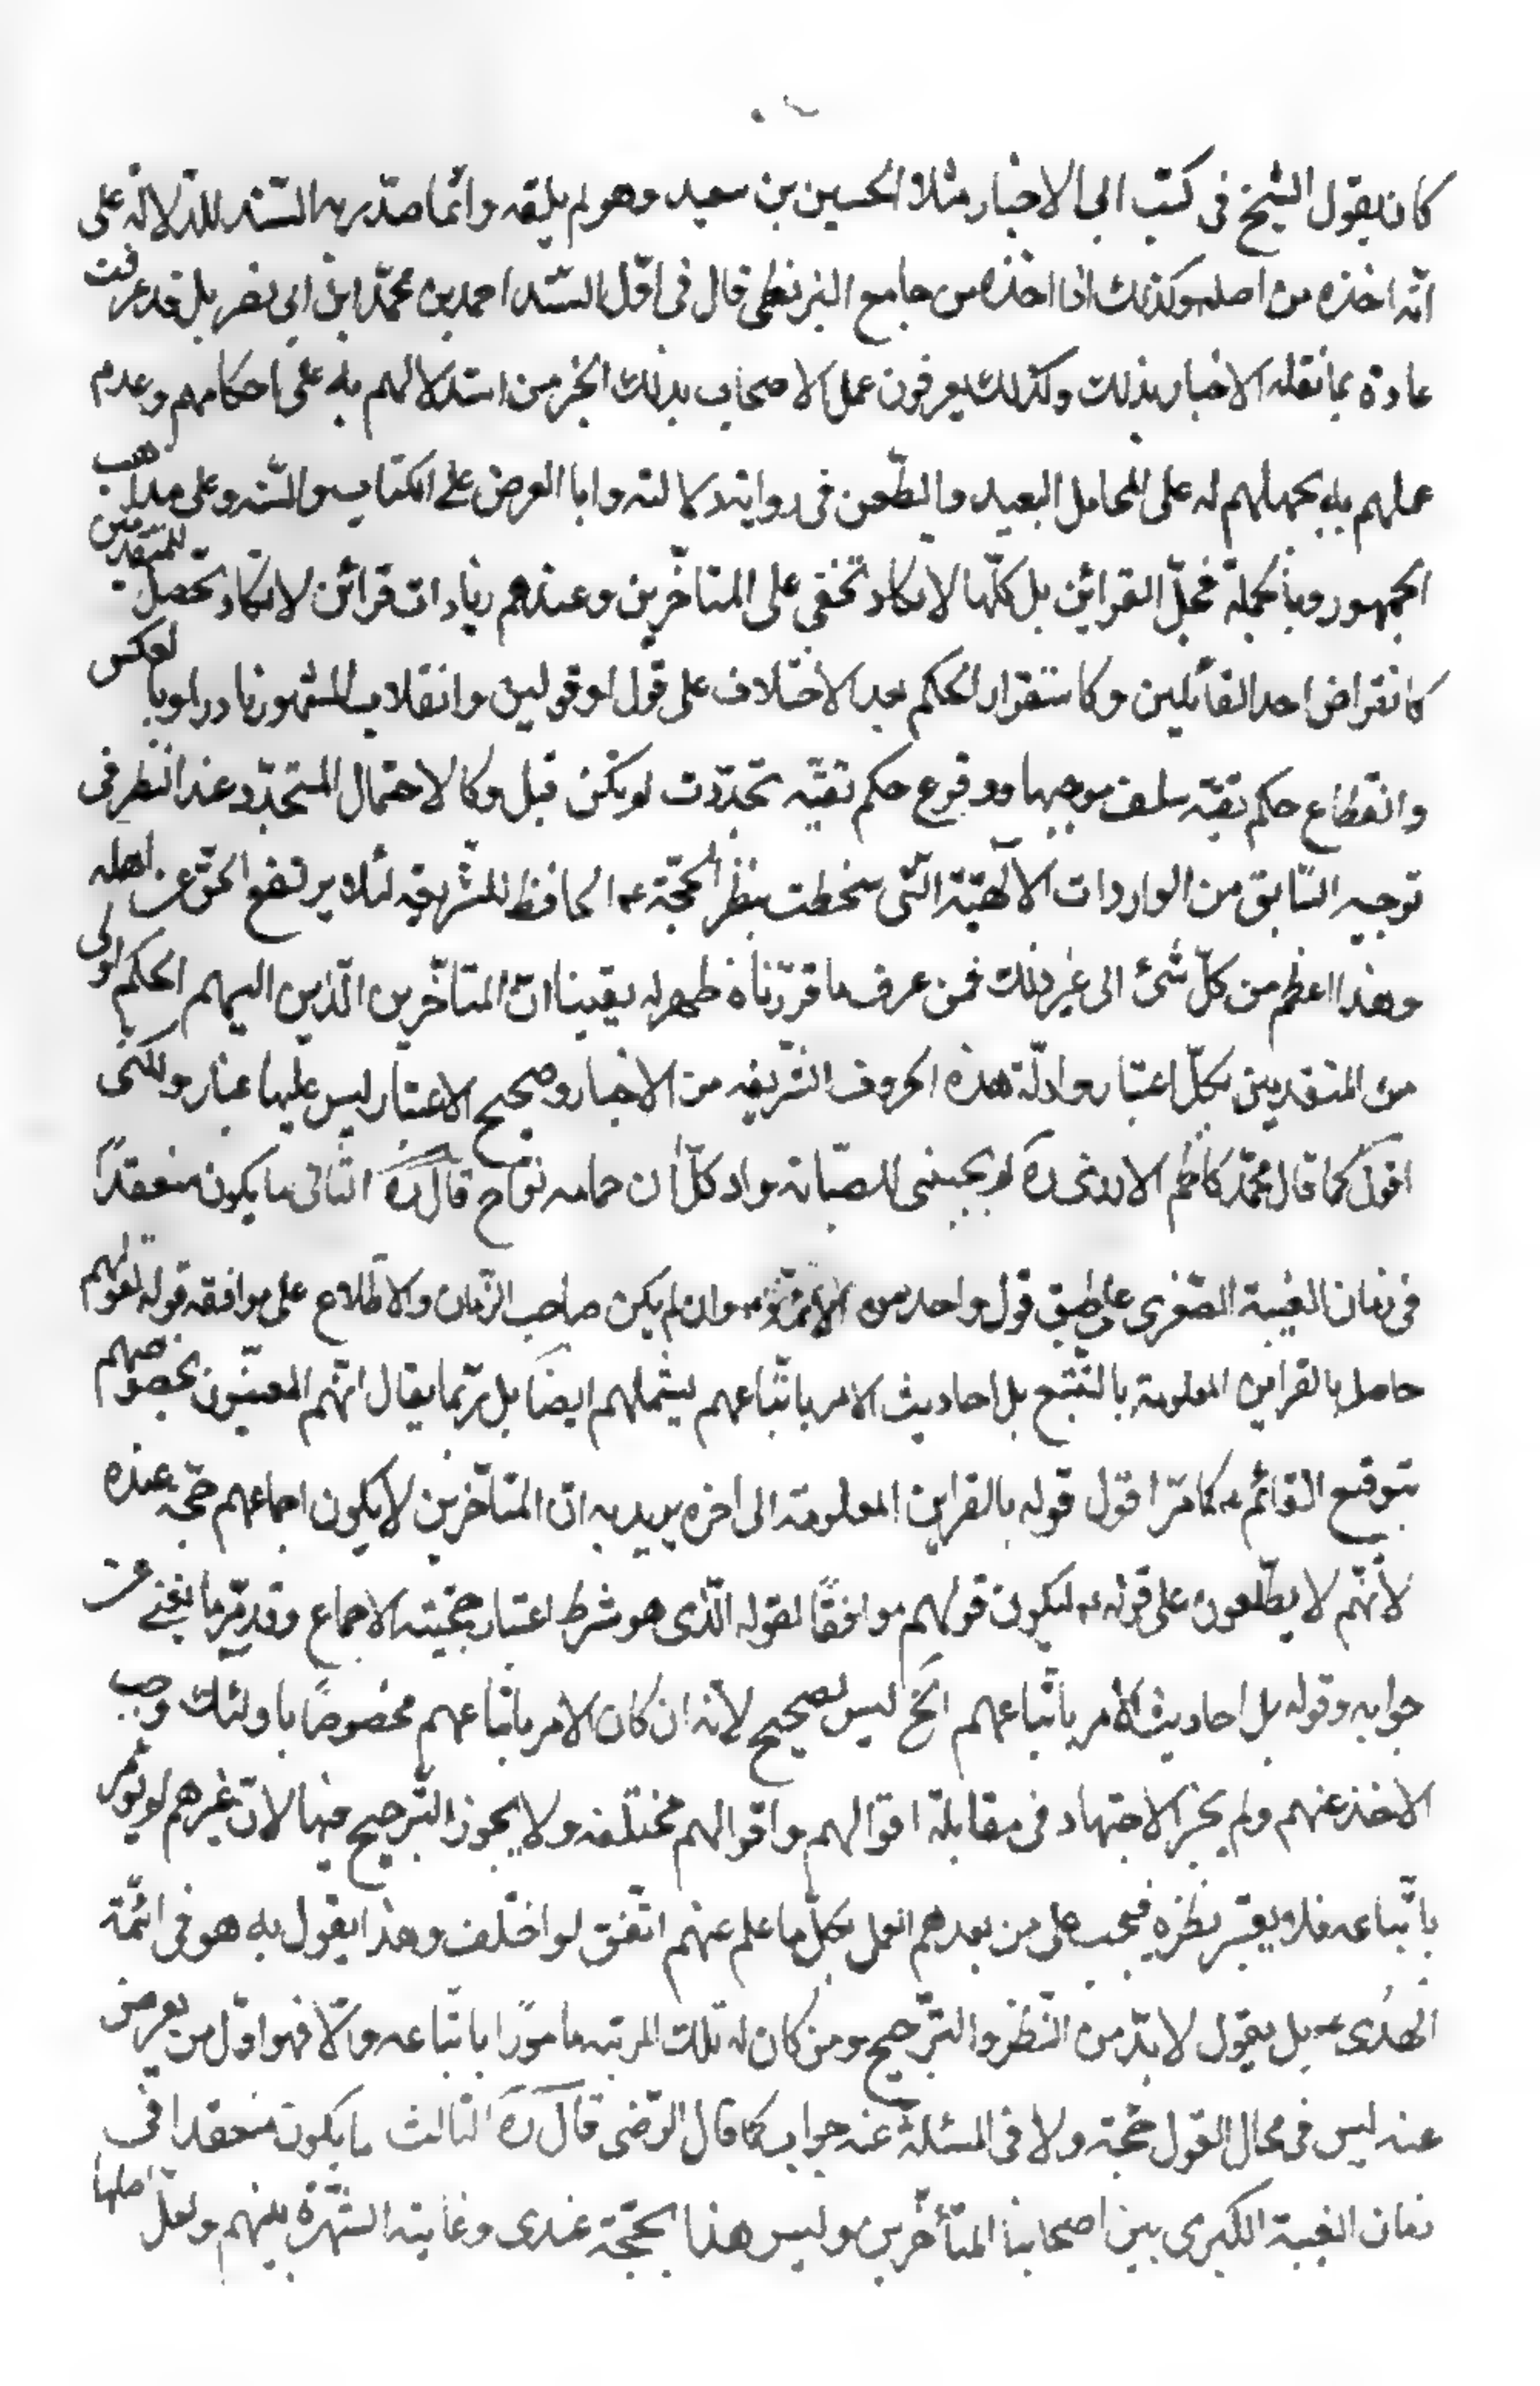 كان يقول الشيخ فى كتب الاخبار مثلا الحسين بن سعيد وهو لم يلقه وانّما صدّر به السّند للدّلالة على
انّه اخذه من اصله وكذلك اذا اخذه من جامع البزنطى قال فى اوّل السّند احمد بن محمّد ابن ابى نصر بل قد عرفت
عادة بما نقله الاخبار بذلك وكذلك يعرفون عمل الاصحاب بذلك الخبر من استدلالهم به على احكامهم وعدم
عملهم به بحملهم له على المحامل البعيد والطّعن فى روايته دلالته واما العرض على الكتاب والسّنه وعلى مذاهب
الجمهور وبالجملة فجلّ القرائن بل كلّها لا تكاد تخفى على المتاخّرين وعندهم زيادات قرائن لا تكاد تحصل للمتقدّمين
كانقراض احد القائلين وكاستقرار الحكم بعد الاختلاف على قول او قولين وانقلاب المشهور نادرا وبالعكس
وانقطاع حكم تقيّه سلف موجبها ووقوع حكم تقيّه تجدّدت لو يكن قبل وكالاحتمال المتجدّد عند النظر فى
توجيه السّابق من الواردات الالهيّة الّتى سخطت بنظر الحجّة عه الحافظ للشّريعه لئلا يرتفع الحقّ عن اهله
وهذا اعظم من كلّ شئ الى غير ذلك فمن عرف ما قرّرناه ظهر له يقينا انّ المتاخّرين الّذين اليهم الحكم اولى
من المتقدمين بكلّ اعتبار وادلّة هذه الحروف الشّريفه من الاخبار وصحيح الاعتبار ليس عليها غبار ولكنى
اقول كما قال محمّد كاظم الازرى ره لو يجبنى للصّبابة واد كلّ ان حمامه نوّاح قال ره الثّانى ما يكون منعقدًا
فى زمان الغيبة الصّغرى على طبق قول واحد من الائمّة وان لم يكن صاحب الزّمان والاطّلاع على موافقه قوله لقولهم
حاصل بالقراين المعلومة بالتّتبع بل احاديث الامر باتّباعهم يشملهم ايضًا بل ربّما يقال انّهم المعنيّون بخصوصهم
بتوقيع القائم عه كما مرّ اقول قوله بالقراين المعلومة الى اخره يريد به انّ المتاخّرين لا يكون اجماعهم حجّة عنده
لأنّهم لا يطّلعون على قوله عه ليكون قولهم موافقًا لقوله الّذى هو شرط اعتبار حجّيته الاجماع وقد مرّ ما يغنى عن
جوابه وقوله بل احاديث الأمر باتّباعهم الخ ليس بصحيح لأنّه ان كان الامر باتّباعهم مخصوصًا باولئك وجب
الاخذ عنهم ولم يجز الاجتهاد فى مقابلة اقوالهم واقوالهم مختلفه ولا يجوز التّرجيح فيها لانّ غيرهم لو يؤمر
باتّباعه فلا يعتبر نظره فيجب على من بعدهم العمل بكلّ ما علم عنهم اتّفق لو اختلف وهذا يقول به هو فى ائمّة
الهدى عه بل يقول لا بدّ من النّظر والتّرجيح ومن كان له تلك المرتبه مامورًا باتّباعه والّا فهو اوّل من يعرض
عنه ليس فى محال القول حجّة ولا فى المسئلة عنه جواب كما قال الرّضى قال ره الثالث ما يكون منعقدا فى
زمان الغيبة الكبرى بين اصحابنا المتأخّرين وليس هذا بحجّة عندى وغايته الشّهرة بينهم ولعلّ اصلها